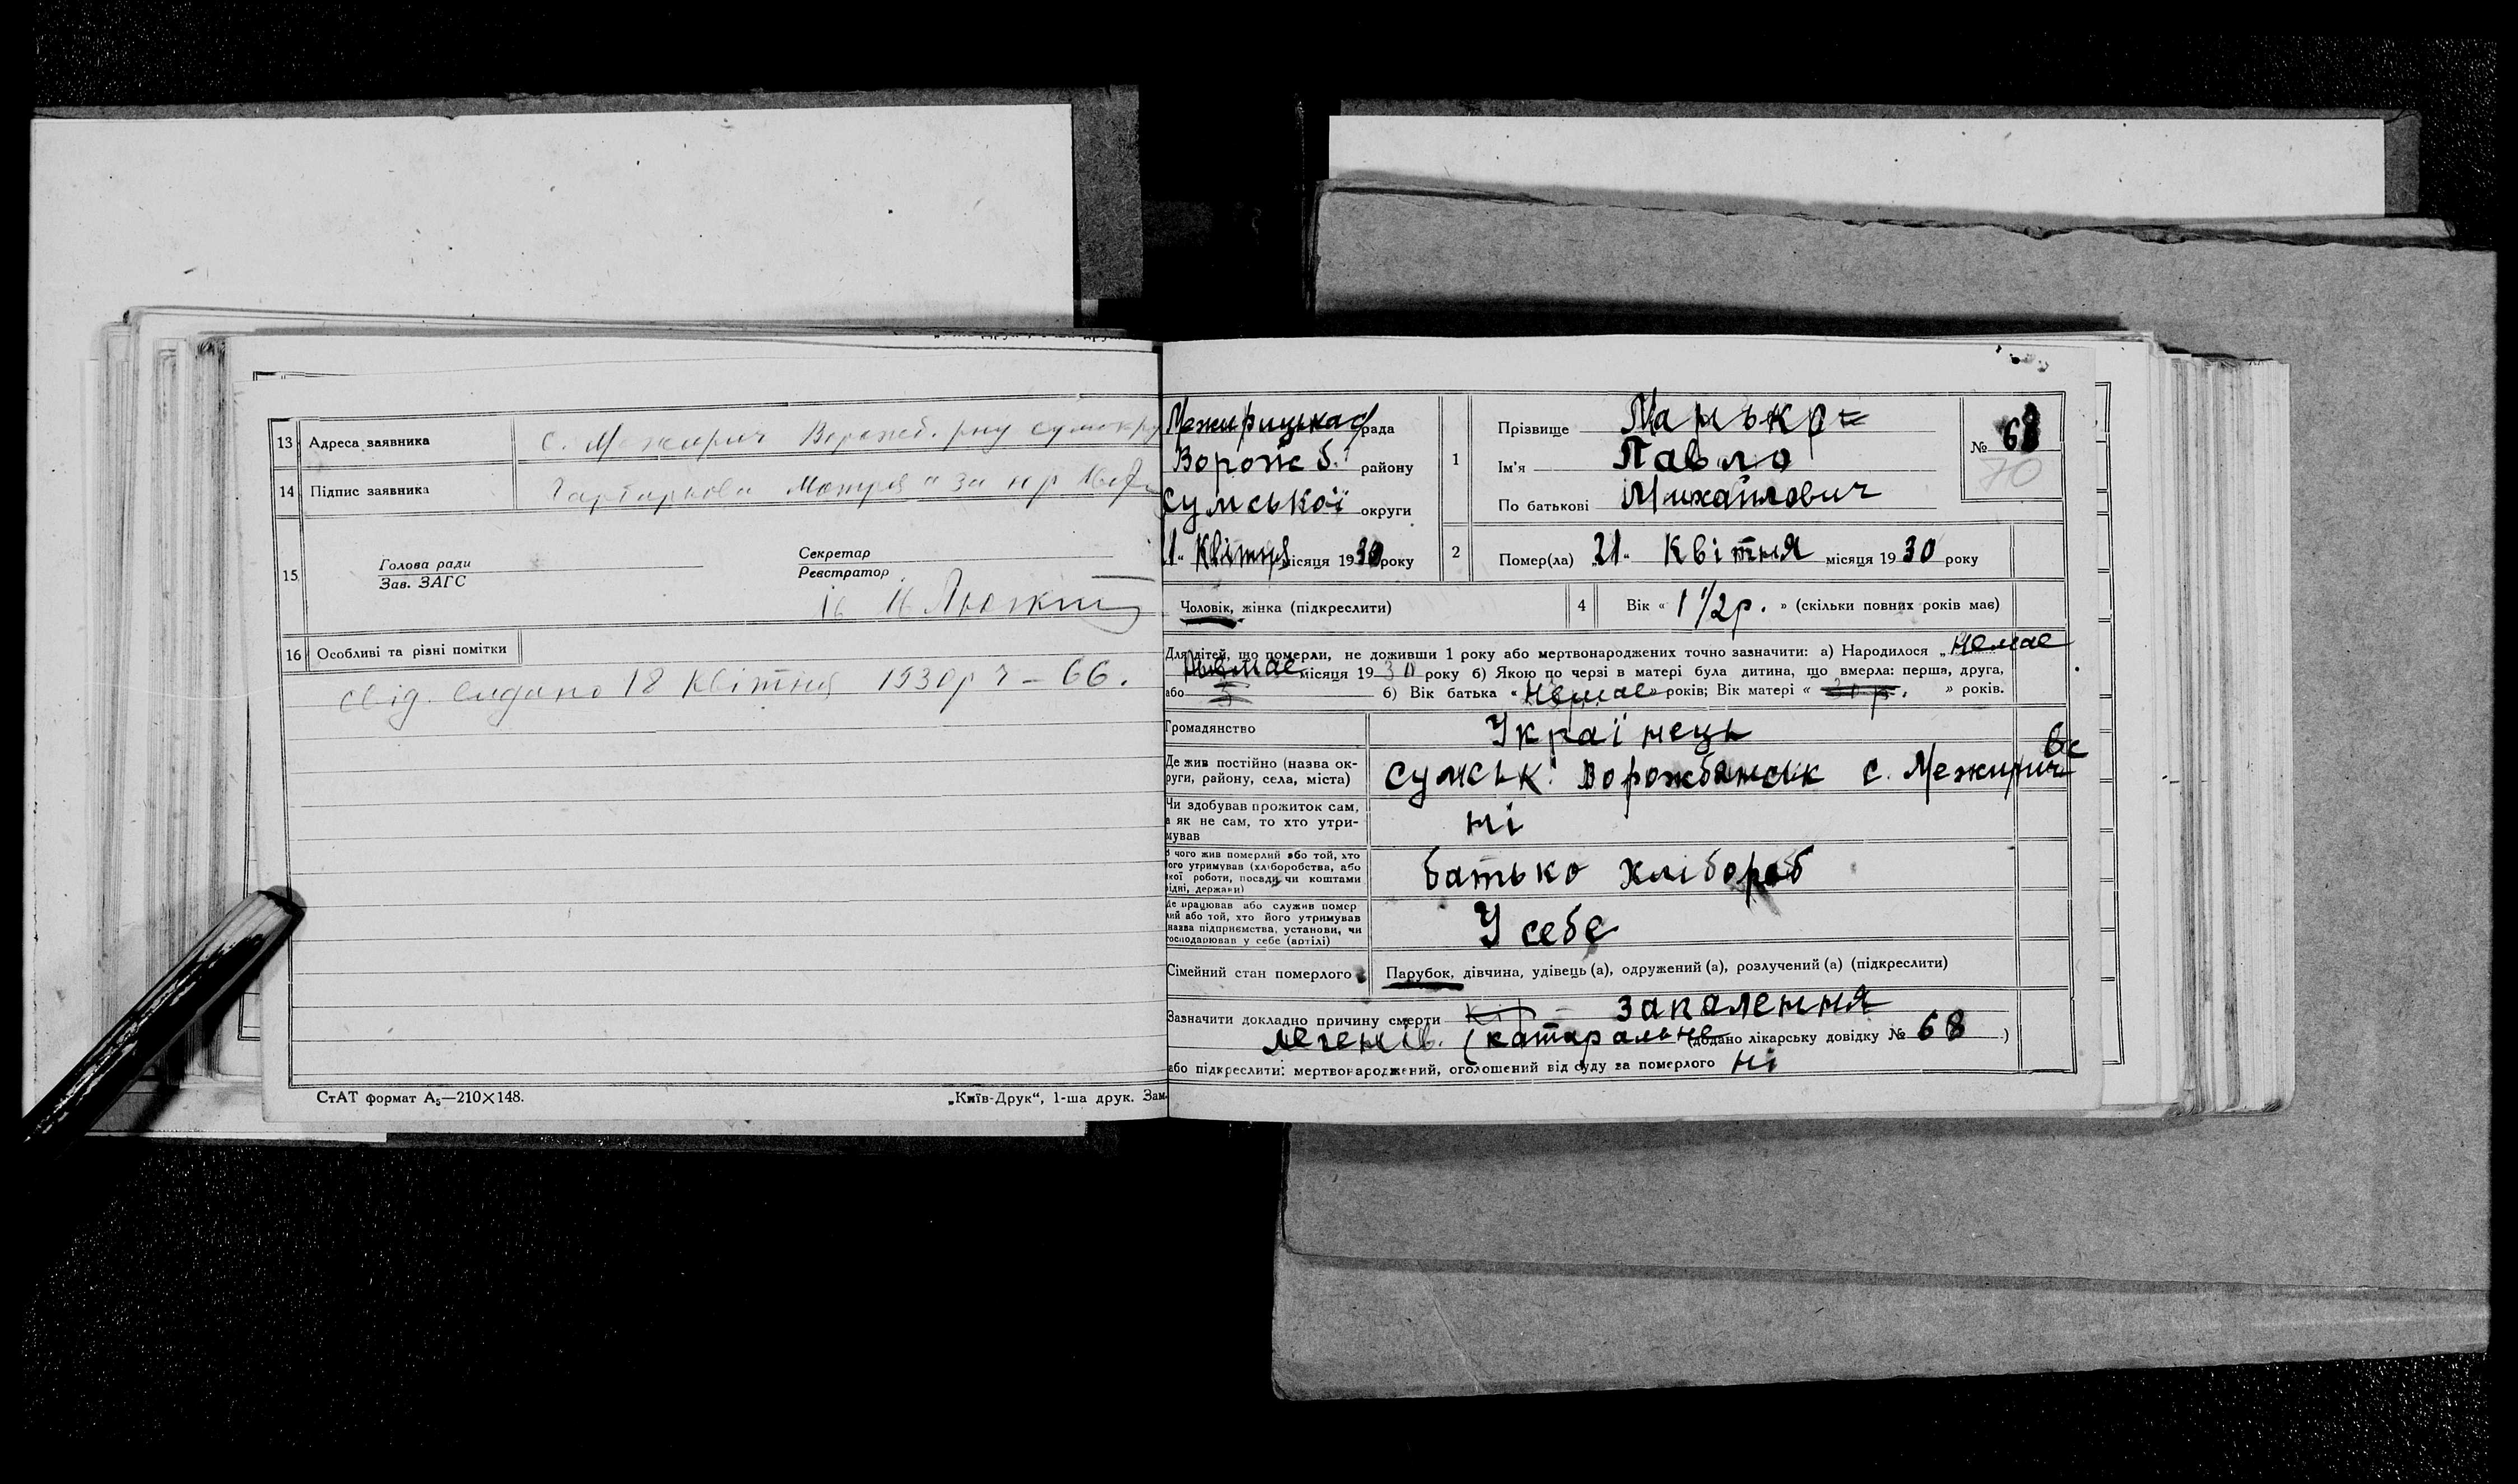 13 Адреса заявника с. Межирич Ворожб. рну сумокру
14 Підпис заявника
15 Голова ради
Зав. ЗАГС
Секретар
Реєстратор
16 Особливі та різні помітки
свід. видано 18 квітня 1930р ч – 66.
СтАТ формат А₅—210×148.
„Київ-Друк“, 1-ша друк. Зам
Межирицька с/рада
Ворожб. району
Сумської округи
1“ Квітня місяця 1930 року
1 Прізвище Марько=
Ім'я Павло
По батькові Михайлович
№ 68
70
2 Помер(ла) „21“ Квітня місяця 1930 року
Чоловік, жінка (підкреслити)
4 Вік « 1 1/2 р. » (скільки повних років має)
Для дітей, що померли, не доживши 1 року або мертвонароджених точно зазначити: а) Народилося „ Немає
Немає місяця 1930 року б) Якою по черзі в матері була дитина, що вмерла: перша, друга,
або б) Вік батька « Немає » років; Вік матері « » років.
Громадянство Українець
Де жив постійно (назва ок-
руги, району, села, міста) Сумськ. Ворожбянськ с. Межирич
Чи здобував прожиток сам,
а як не сам, то хто утри-
мував ні
З чого жив померлий або той, хто
його утримував (хліборобства, або
якої роботи, посади чи коштами
рідні, держави) батько хлібороб
Де працював або служив помер
лий або той, хто його утримував
назва підприємства, установи, чи
господарював у себе (артілі) У себе
Сімейний стан померлого Парубок, дівчина, удівець (а), одружений (а), розлучений (а) (підкреслити)
Зазначити докладно причину смерти запалення
легенів. (катаральне (додано лікарську довідку № 68 )
або підкреслити: мертвонароджений, оголошений від суду за померлого ні